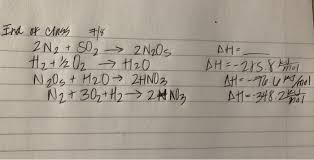 End of class 7/8
2N₂ + SO₂ → 2N₂O₅ ΔH=___
H₂ + ½ O₂ → H₂O ΔH=-285.8 kJ/mol
N₂O₅ + H₂O → 2HNO₃ ΔH=-76.6 kJ/mol
N₂ + 3O₂ + H₂ → 2HNO₃ ΔH=-348.2 kJ/mol